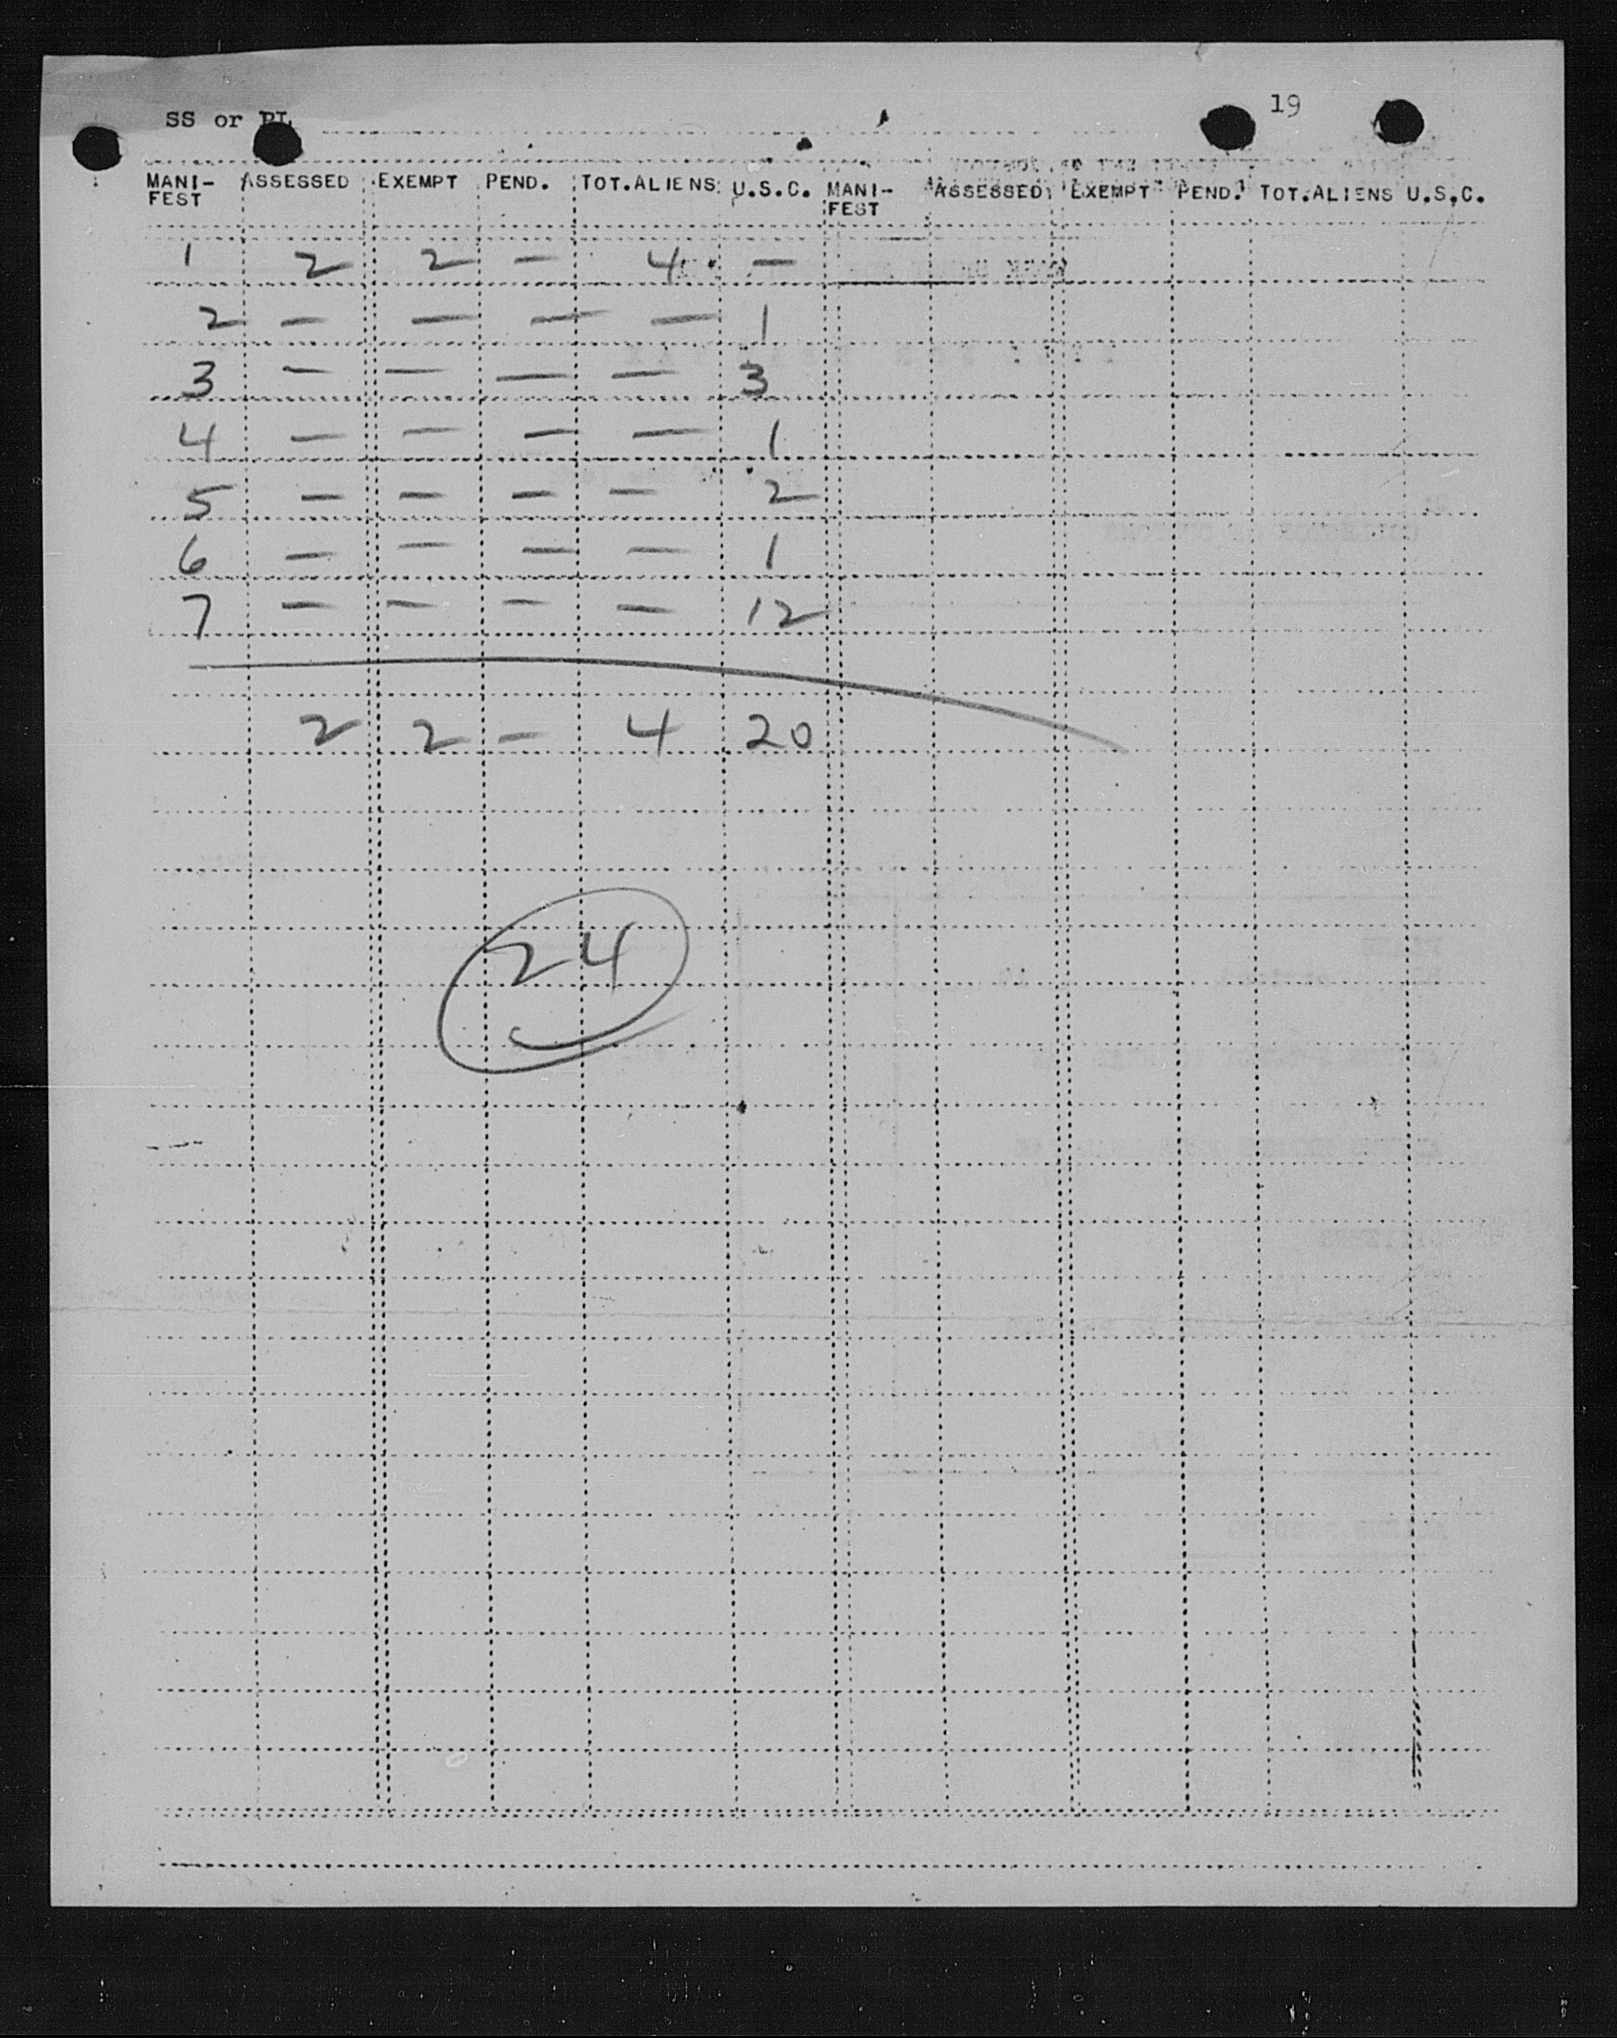 SS or PL 19
MANI-FEST ASSESSED EXEMPT PEND. TOT.ALIENS U.S.C. MANI-FEST ASSESSED EXEMPT PEND. TOT.ALIENS U.S.C.
1 2 2 — 4 —
2 — — — — 1
3 — — — — 3
4 — — — — 1
5 — — — — 2
6 — — — — 1
7 — — — — 12
2 2 — 4 20
24